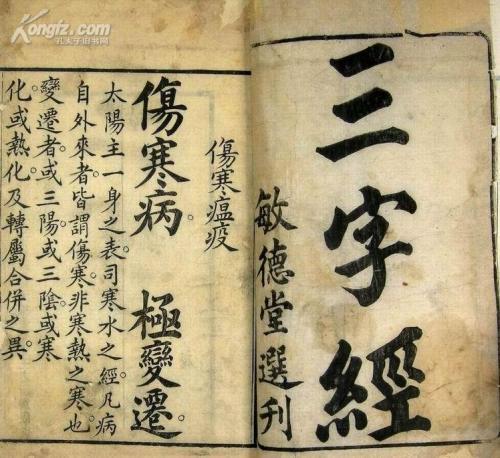 三字經
敏德堂選刊
傷寒瘟疫
傷寒病。極變遷。
太陽主一身之表。司寒水之經。凡病
自外來者。皆謂傷寒。非寒熱之寒也。
變遷者。或三陽。或三陰。或寒
化。或熱化。及轉屬合併之異。
Kongfz.com
孔夫子旧书网